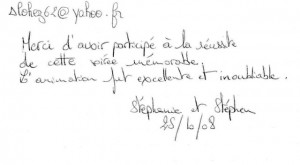 slohez62@yahoo.fr
Merci d'avoir participé à la réussite
de cette soirée mémorable.
L'animation fut excellente et inoubliable.
Stéphanie et Stephen
25/10/08